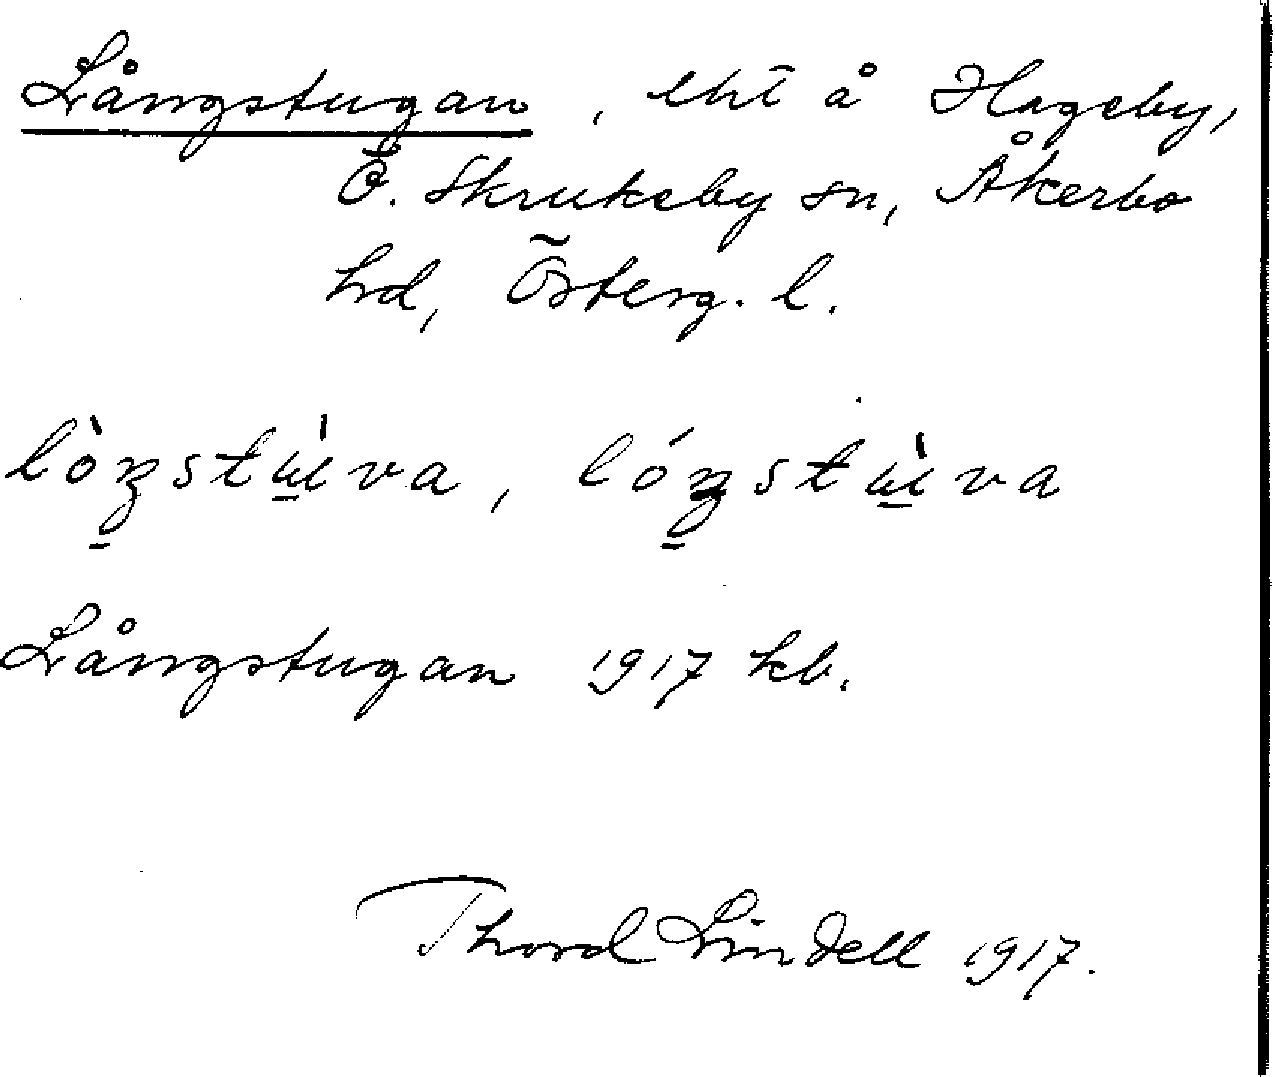 Långstugan, lht å Hageby,
Ö. Skrukeby sn, Åkerbo
hd, Österg. l.
Långstugan 1917 kb.
Thord Lindell 1917.